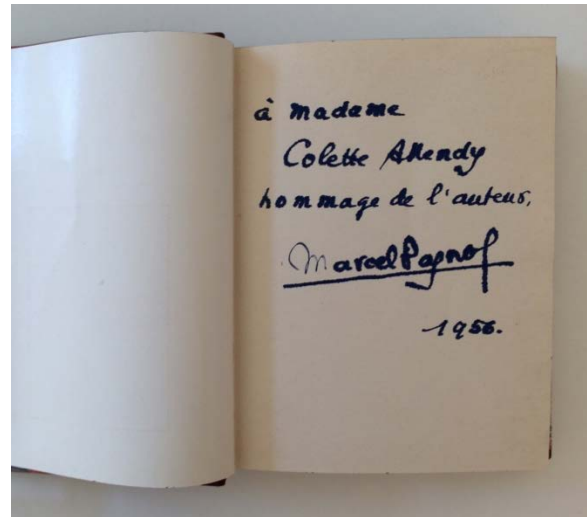 à madame
Colette Allendy
hommage de l'auteur,
Marcel Pagnol
1956.